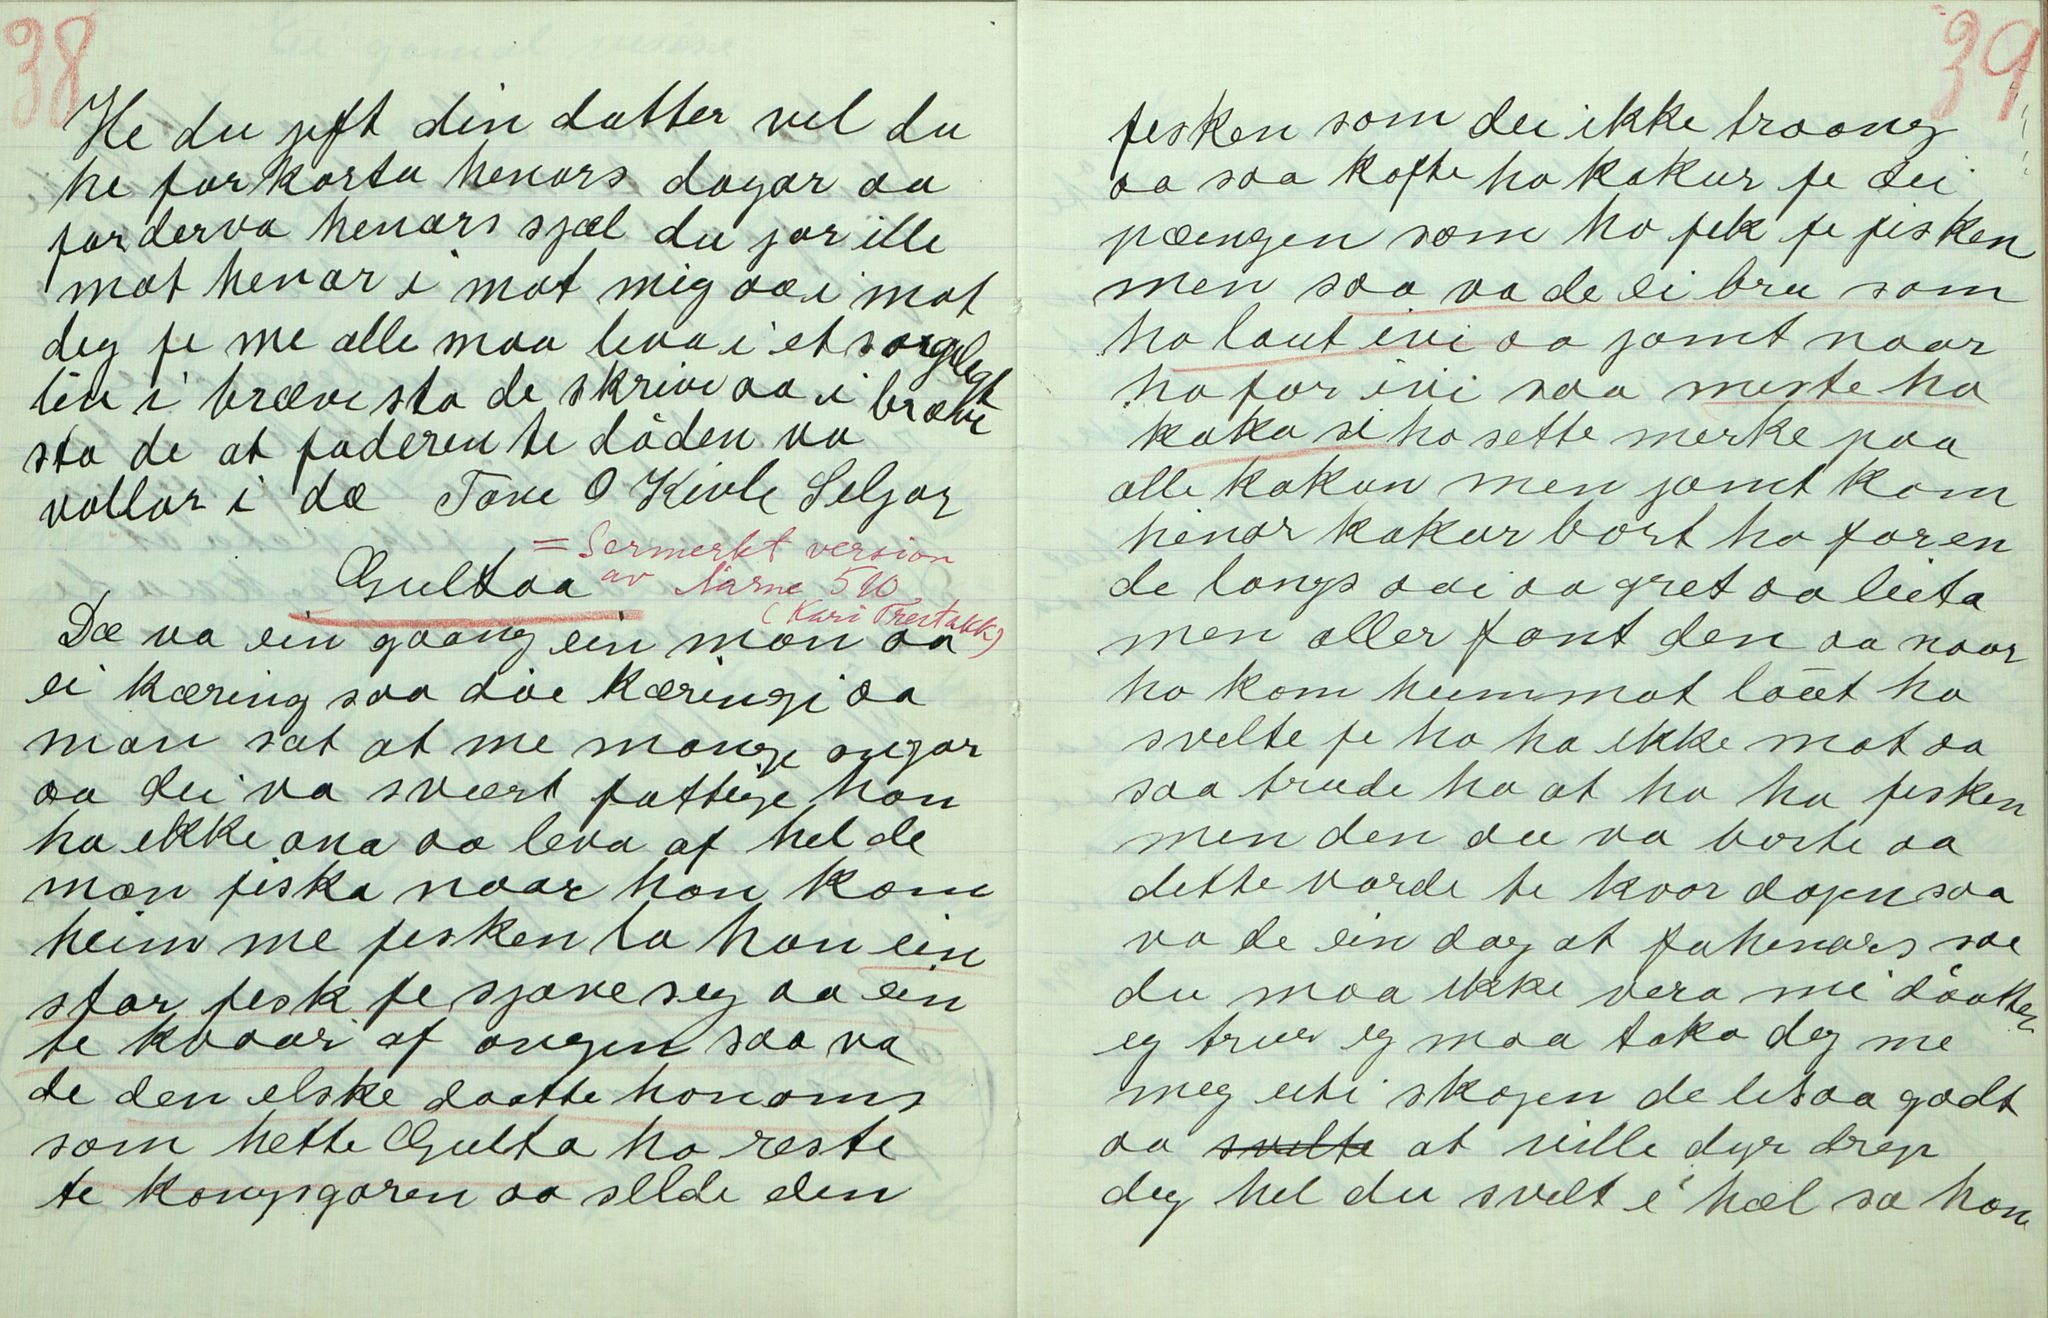 38
He du jift din datter vel du
he forkorta henars dagar aa
forderva henars sjæl du jor ille
mot henar i mot mig aa i mot
deg fe me alle maa leva i et sorgelegt
liv i brævi sto de skrive aa i brævi
sto de at faderen te döden va
vollar i dæ Tove O Kivle Seljor
Gultaa
= Sermerkt version
av Aarne 510
(Kari Trestakk)
Dæ va ein gaang ein mon aa
ei kæring saa döe kæringi aa
mon sat at me monge ungar
aa dei va svært fattige hon
ha ikke ana aa leva af hel de
mon fiska naar hon kom
heim me fesken ta hon ein
stor fesk fe sjøve seg aa ein
te kvaar af ongin saa va
de den elske daatte honoms
som hette Gulta ho reste
te kongsgoren aa selde den
39
fesken som dei ikke traang
aa saa kofte ho kakur fe dei
pængen som ho fek fe fisken
men saa va de ei bru som
ho laut ivi aa jamt naar
ho for ivi saa meste ho
kaka si ho sette merke paa
alle kakun men jamt kom
henar kakur bort ho for en
de longs aai aa gret aa leita
men aller fant den aa naar
ho kom heimmot löut ho
svelte fe ho ha ikke mat aa
saa trude ho at ho ha fesken
men den au va borte aa
dette varde te kvor dagen saa
va de ein dag at fahenars sae
du maa ikke vera mi daatter
eg truer eg maa taka deg me
meg uti skogen de er saa godt
aa svelte at ville dyr drep
deg hel du svelt i hæl sa hon